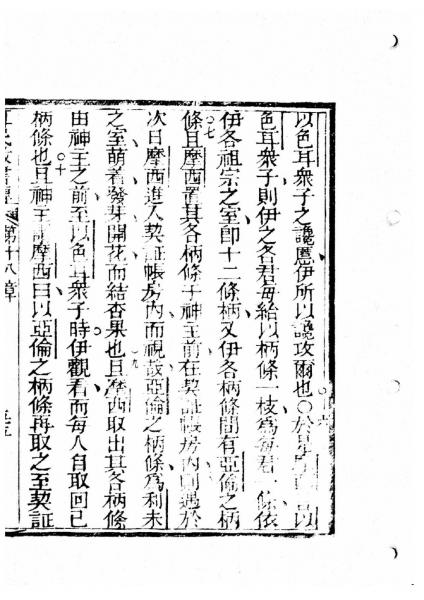 以色耳衆子之讒慝伊所以讒攻爾也○於是摩西以
色耳衆子則伊之各君每給以柄條一枝爲每君一條依
伊各祖宗之室卽十二條柄又伊各柄條間有亞倫之柄
條且摩西置其各柄條于神主前在契証帳房內而遇於
次日摩西進入契証帳房內而視哉亞倫之柄條爲利未
之室萌着發芽開花而結杏果也且摩西取出其各柄條
由神主之前至以色耳衆子時伊觀看而每人自取回己
柄條也且神主謂摩西曰以亞倫之柄條再取之至契証
第十八章